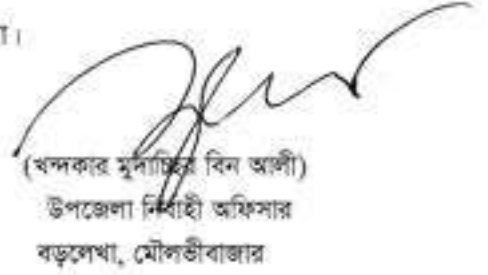 া।
(খন্দকার মুদাচ্ছির বিন আলী)
উপজেলা নির্বাহী অফিসার
বড়লেখা, মৌলভীবাজার